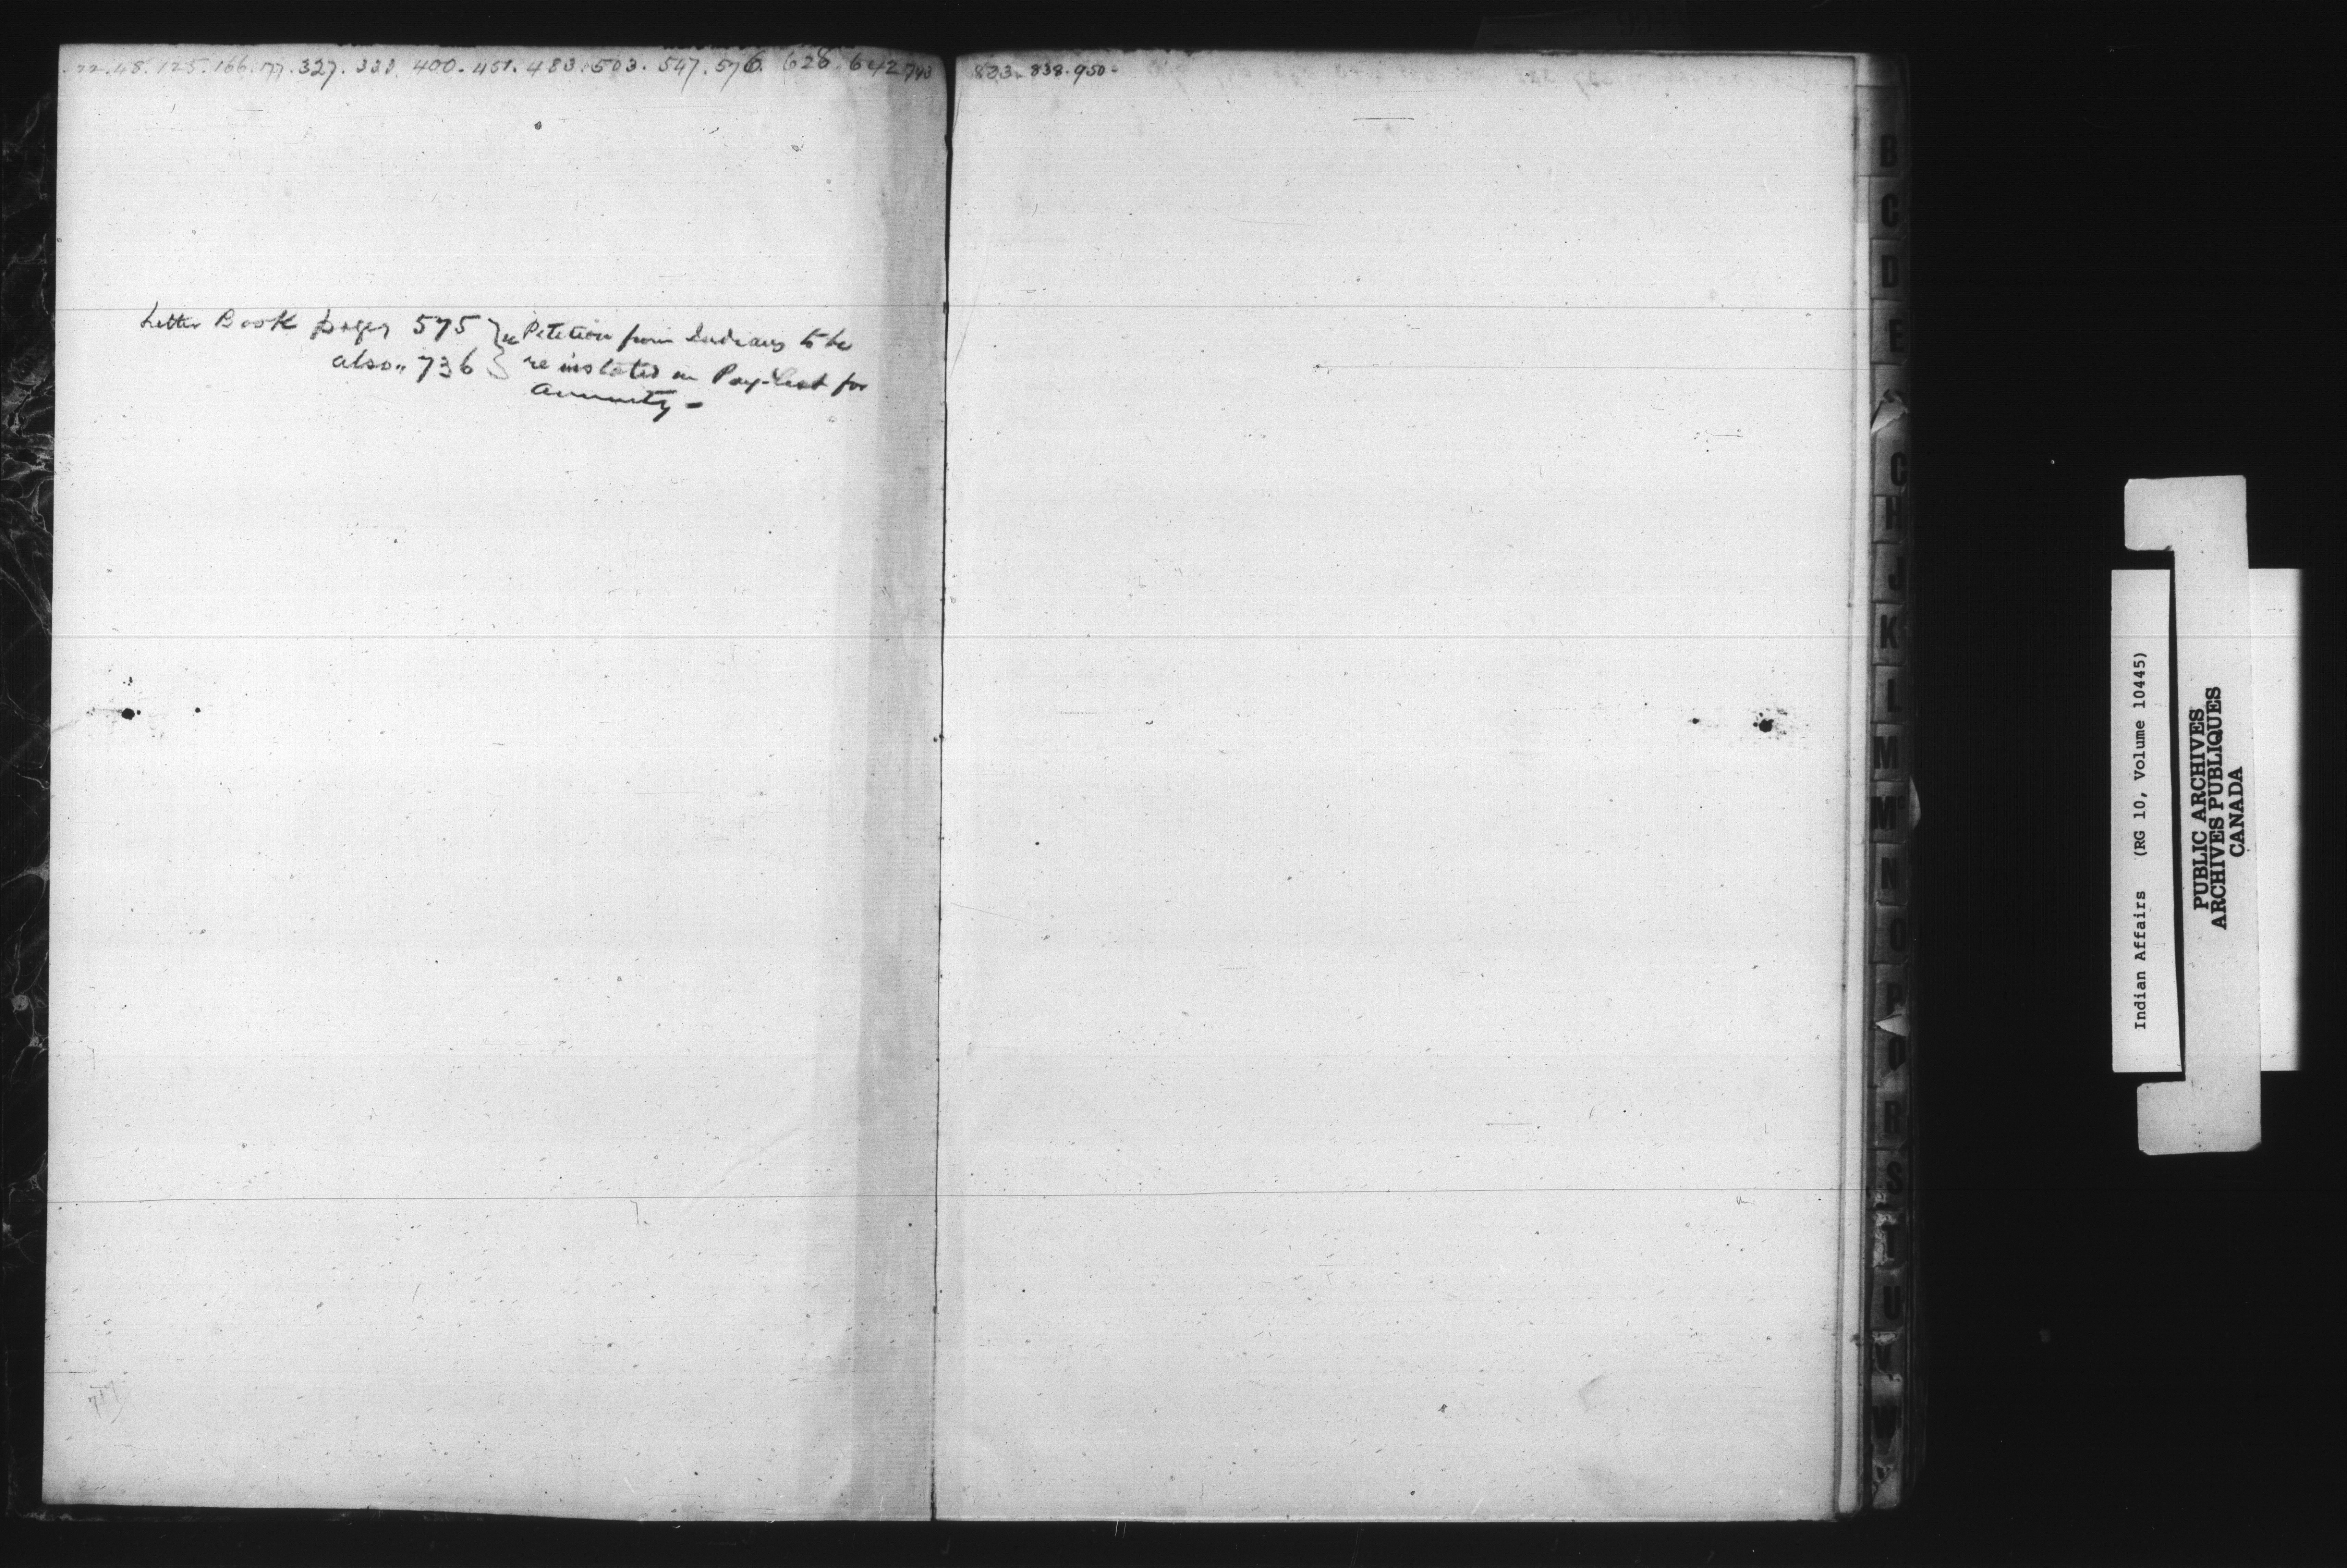 22. 48. 125. 166. 177. 327. 333. 400. 451. 483. 503. 547. 576. 628. 642 743
823. 838. 950.
Letter Book pages 575 } Petition from Indians to be
also " 736 } re instated on Pay-List for
annuity -
B
C
D
E
G
H
J
K
L
M
Mc
N
O
P
Q
R
S
T
U
V
W
Indian Affairs (RG 10, Volume 10445)
PUBLIC ARCHIVES
ARCHIVES PUBLIQUES
CANADA